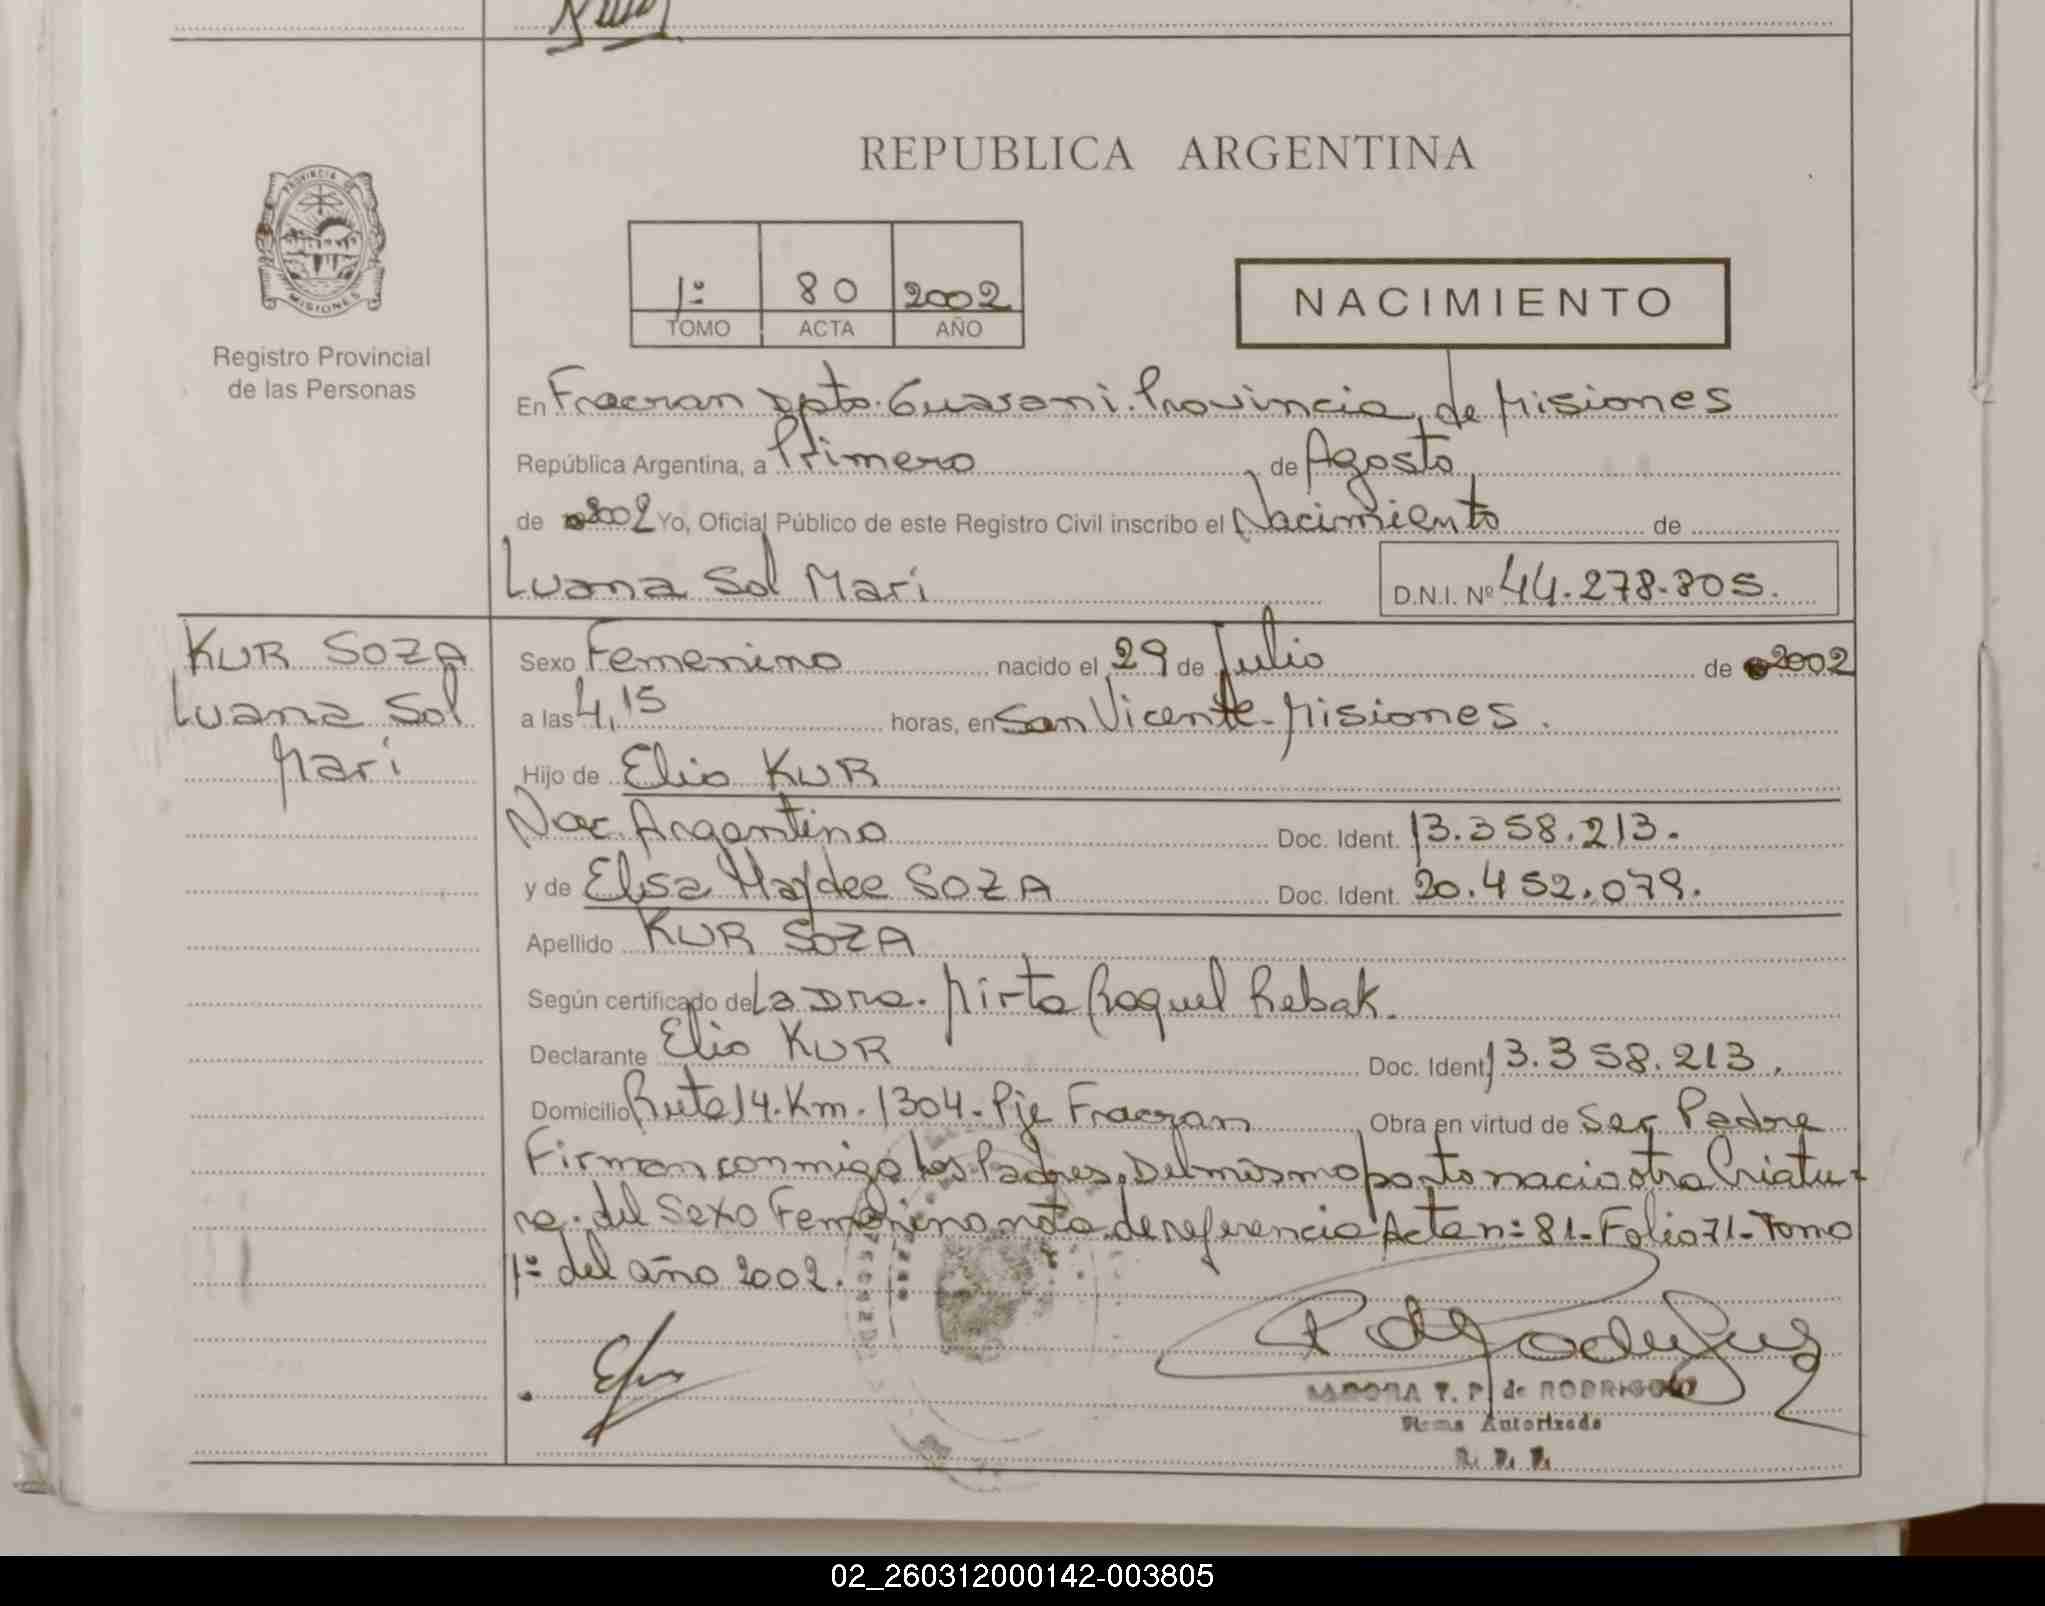 REPUBLICA ARGENTINA
PROVINCIA DE
MISIONES
Registro Provincial
de las Personas
1º 80 2002
TOMO ACTA AÑO
NACIMIENTO
En Fracran Dpto. Guarani. Provincia de Misiones
República Argentina, a Primero de Agosto
de 2002 Yo, Oficial Público de este Registro Civil inscribo el Nacimiento de
Luana Sol Mari D.N.I. Nº 44.278.805.
KUR SOZA
Luana Sol
Mari
Sexo Femenino nacido el 29 de Julio de 2002
a las 4,15 horas, en San Vicente - Misiones.
Hijo de Elio KUR
Nac. Argentino Doc. Ident. 13.358.213.
y de Elisa Haydee SOZA Doc. Ident. 20.452.079.
Apellido KUR SOZA
Según certificado de La Dra. Mirta Raquel Rebak.
Declarante Elio KUR Doc. Ident. 13.358.213.
Domicilio Ruta 14. Km. 1304 - Pje Fracran Obra en virtud de Ser Padre
Firman conmigo los Padres. Del mismo parto nacio otra Criatu-
ra. del Sexo Femenino nota de referencia Acta nº 81 - Folio 71 - Tomo
1º del año 2002.
T. P. de RODRIGUEZ
Firma Autorizada
R. P. P.
02_260312000142-003805